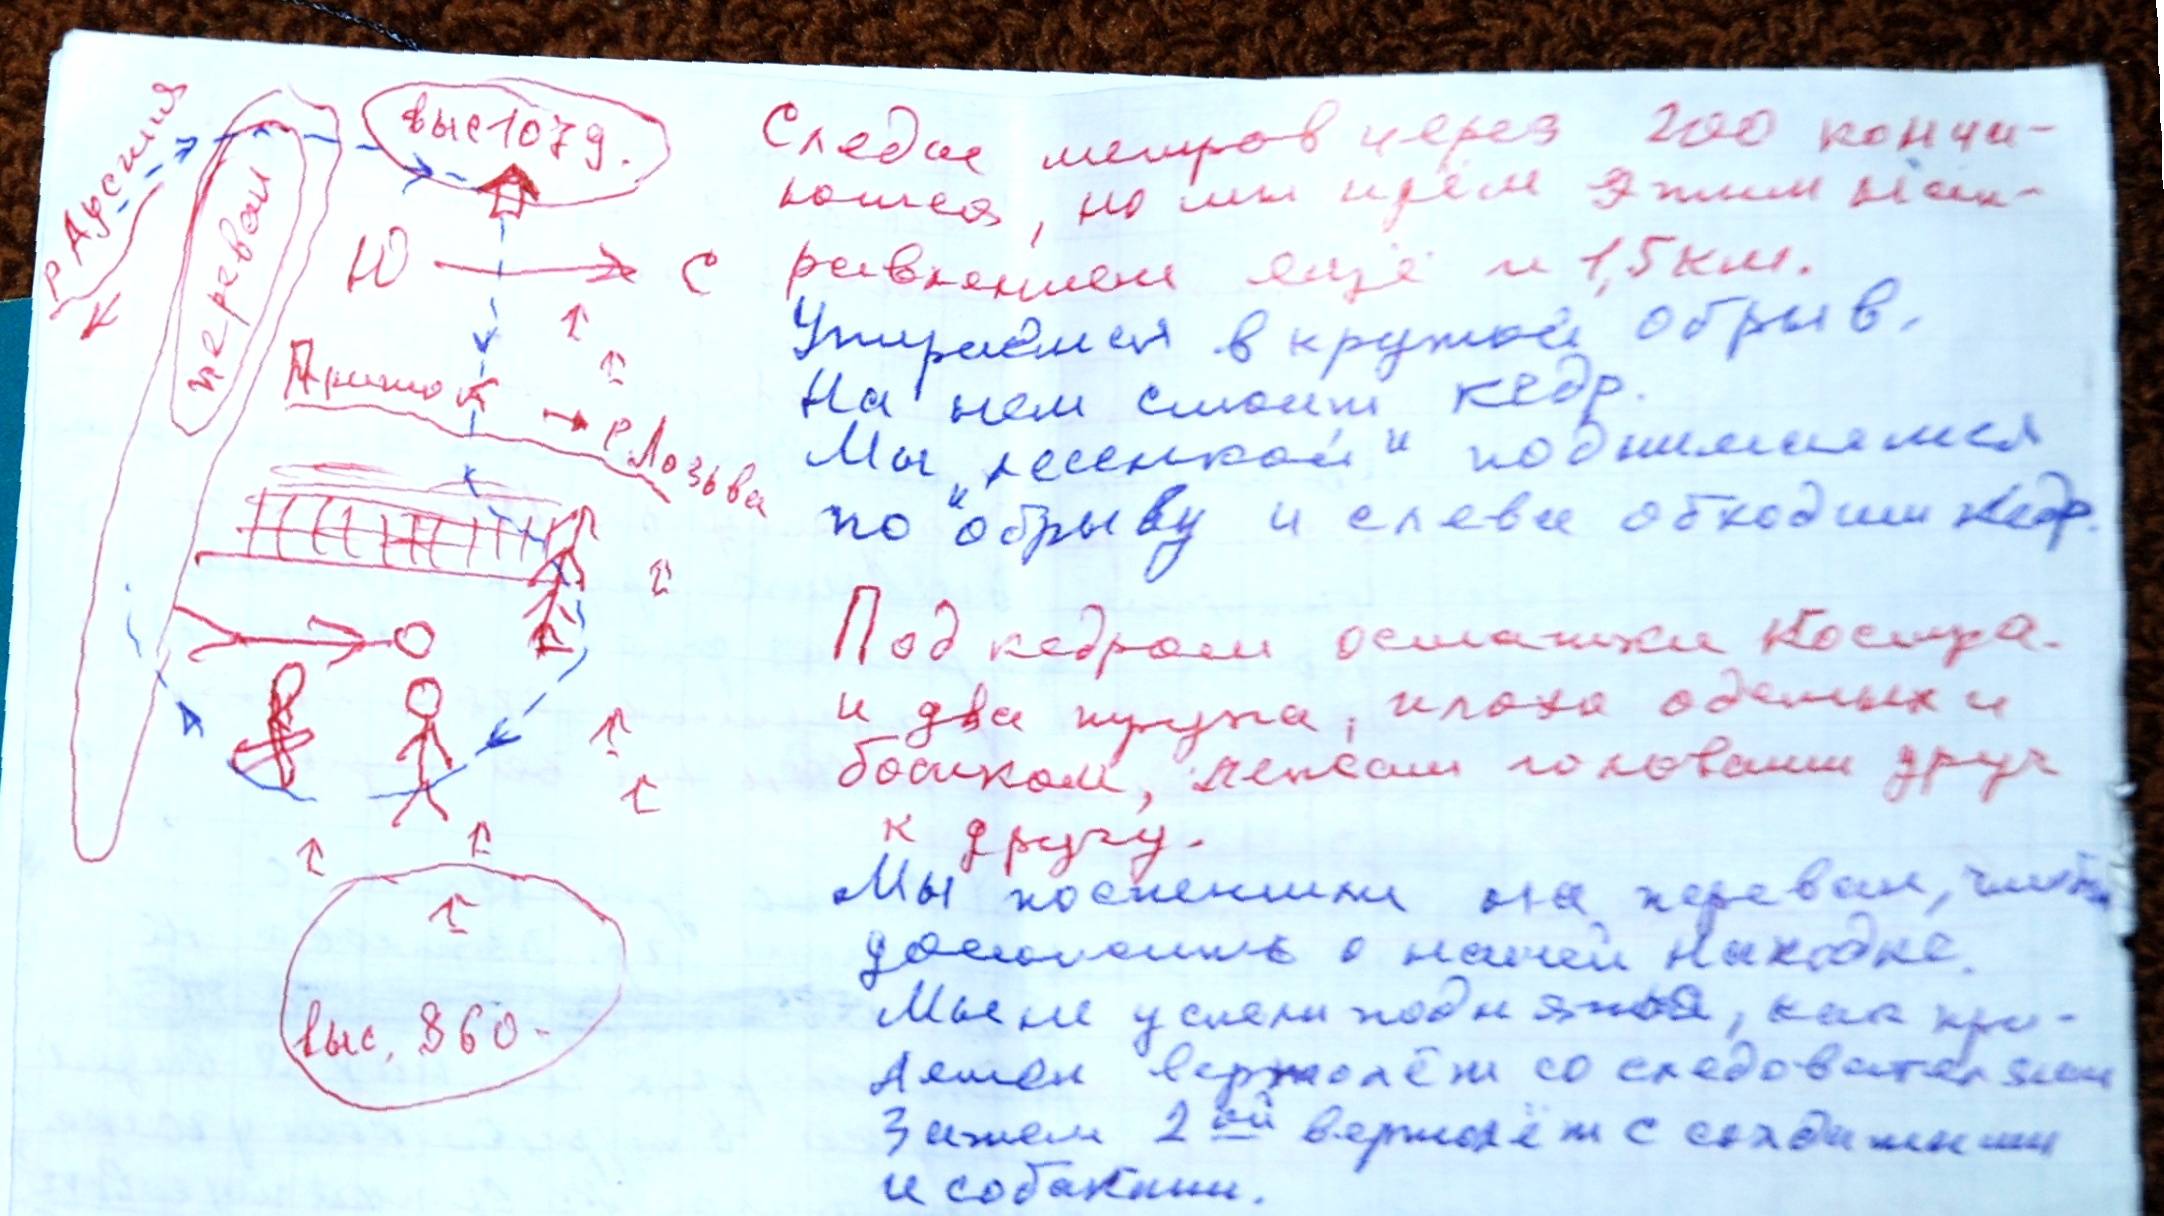 выс 1079.
р Ауспия
перевал
Ю С
Приток
р Лозьва
выс. 860-
Следы метров через 200 кончи-
лись, но мы идём этим нап-
равлением ещё и 1,5 км.
Упираемся в крутой обрыв.
На нем стоит кедр.
Мы „лесенкой" поднимаемся
по "обрыву и слева обходим кедр.
Под кедром остатки костра
и два трупа, плохо одетых и
босиком, лежат головами друг
к другу.
Мы поспешили на перевал, чтобы
доложить о нашей находке.
Мы не успели подняться, как при-
летел вертолёт со следователями
Затем 2ой вертолёт с солдатами
и собаками.